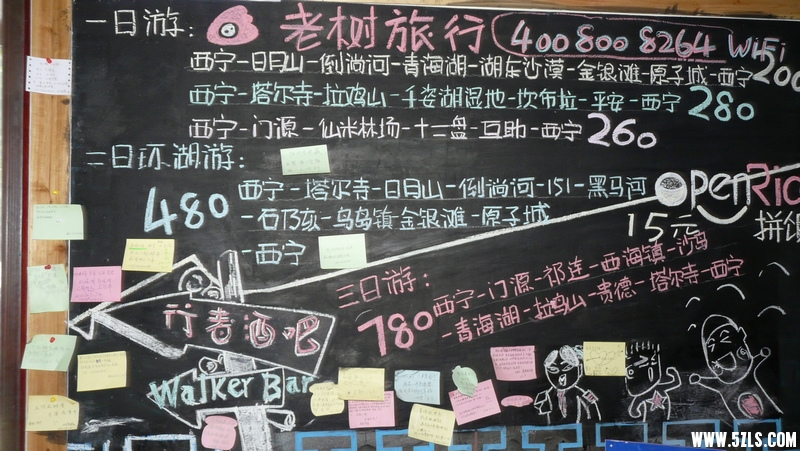 一日游:
老树旅行 400 800 8264 WiFi
西宁-日月山-倒淌河-青海湖-湖东沙漠-金银滩-原子城-西宁 200
西宁-塔尔寺-拉鸡山-千姿湖湿地-坎布拉-平安-西宁 280
西宁-门源-仙米林场-十二盘-互助-西宁 260
二日环湖游:
480
西宁-塔尔寺-日月山-倒淌河-151-黑马河
-石乃亥-鸟岛镇 金银滩-原子城
-西宁
OpenRic
15元 拼饭
三日游:
780
西宁-门源-祁连-西海镇-沙岛
-青海湖-拉鸡山-贵德-塔尔寺-西宁
行者酒吧
Walker Bar
WWW.5ZLS.COM